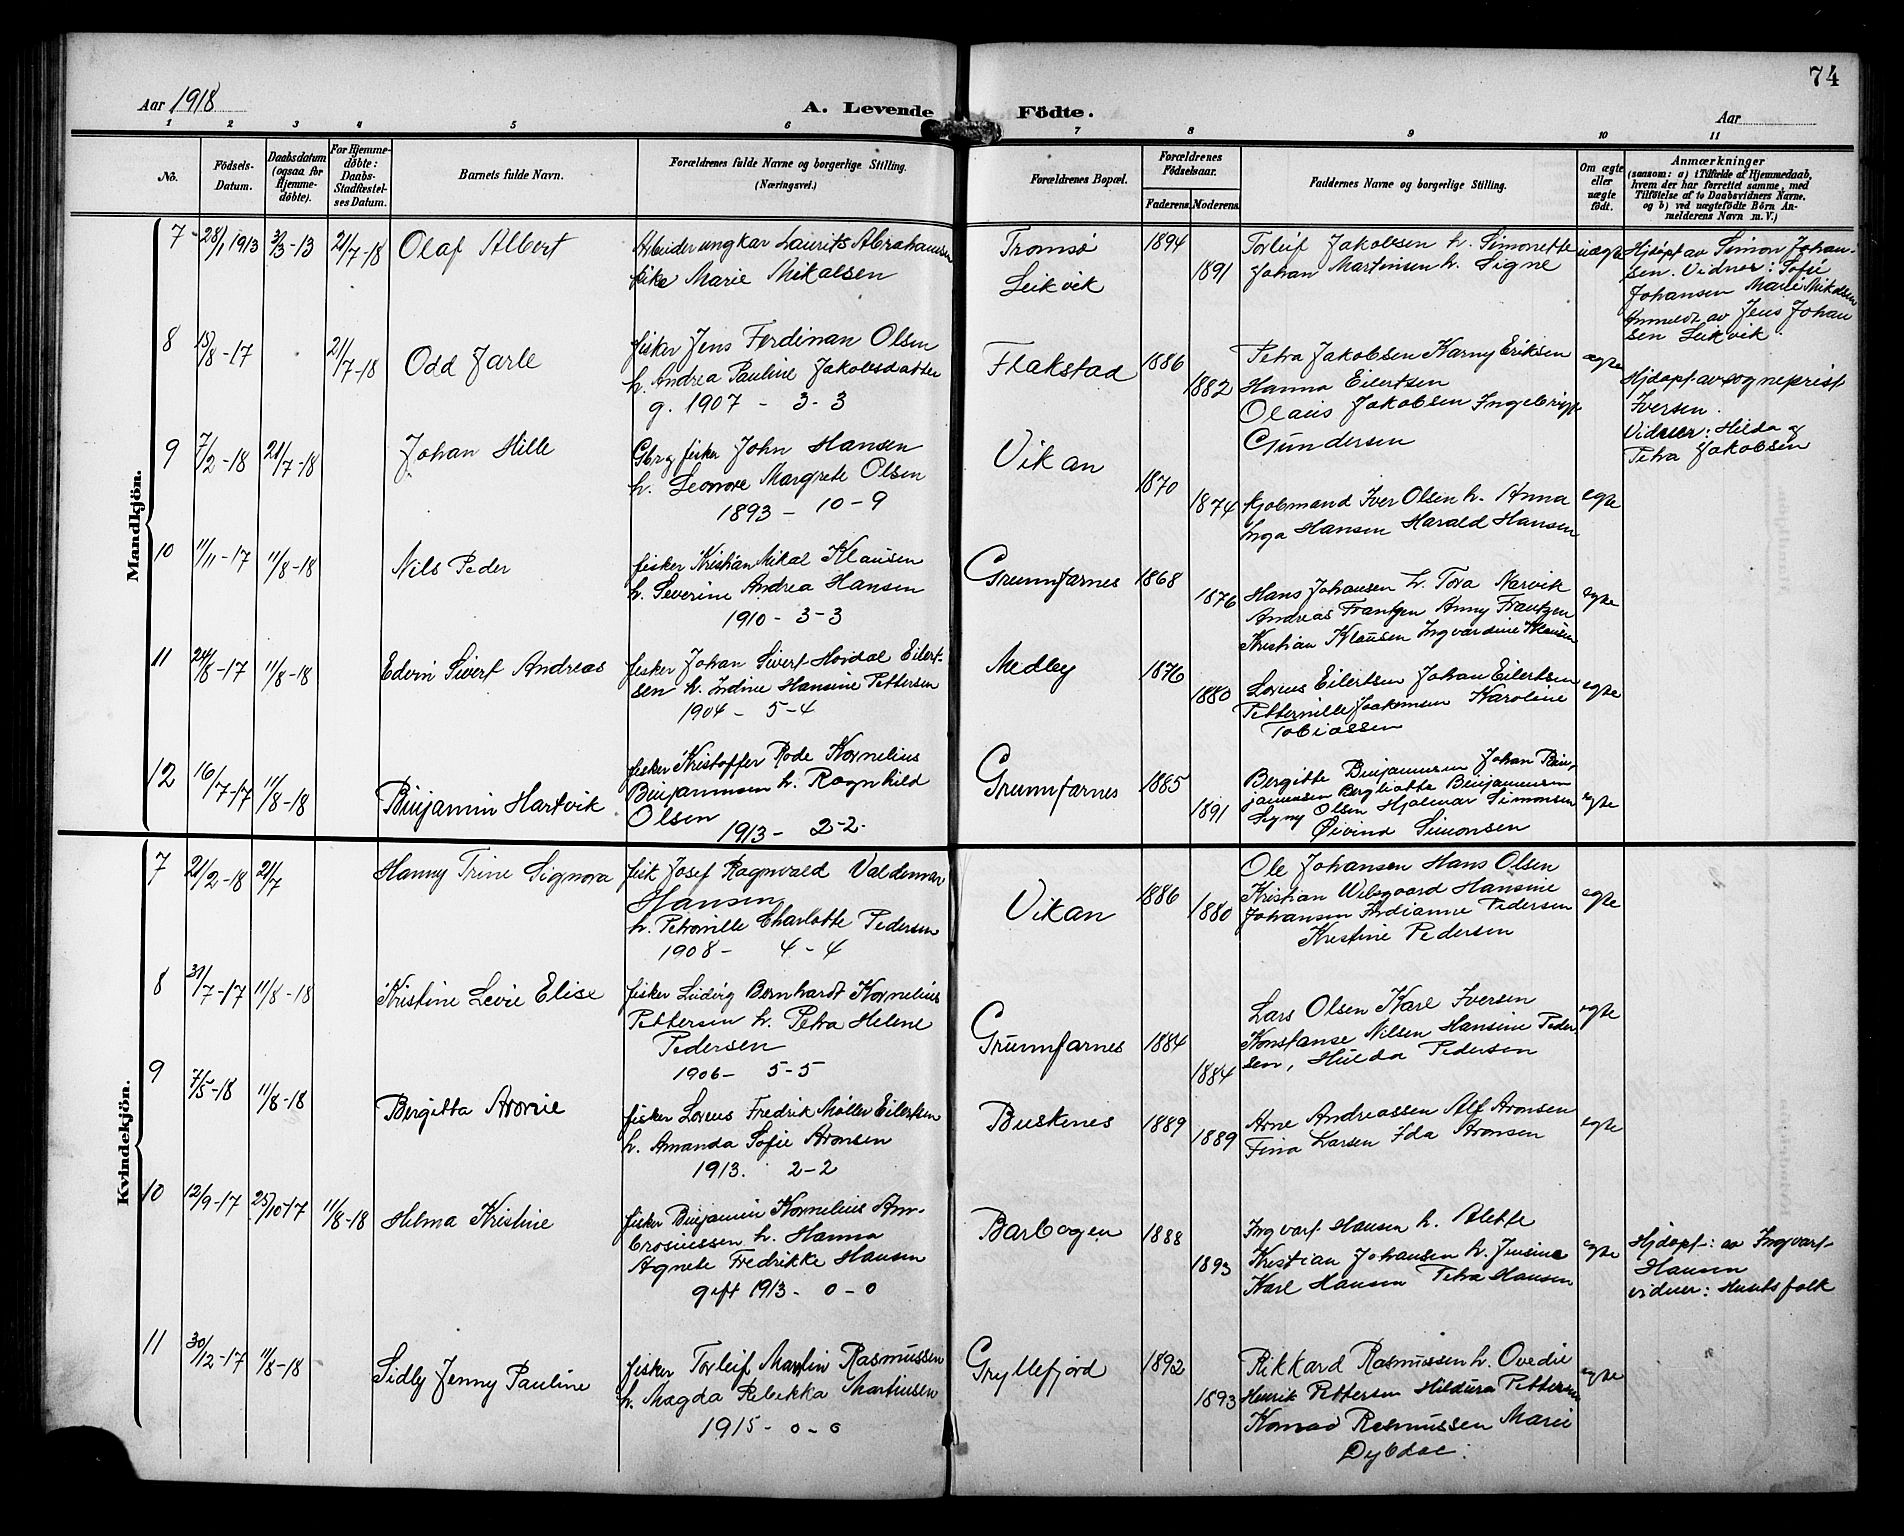 74
Aar 1918 A. Levende Födte. Aar
1 2 3 4 5 6 7 8 9 10 11
No. Födsels-Datum. Daabsdatum (ogsaa for Hjemme-døbte). For Hjemme-døbte: Daabs-Stadfæstel-ses Datum. Barnets fulde Navn. Forældrenes fulde Navne og borgerlige Stilling. (Næringsvei.) Forældrenes Bopæl. Forældrenes Födselsaar. Faderens. Moderens. Faddernes Navne og borgerlige Stilling. Om ægte eller uægte födt. Anmærkninger (saasom: a) i Tilfælde af Hjemmedaab, hvem der har forrettet samme, med Tilföielse af to Daabsvidners Navne. og b) ved uægtefødte Börn Anmelderens Navn m. V.)
Mandkjön.
7 28/1 1913 3/3-13 21/7-18 Olaf Albert Arbeider ungkar Laurits Abrahamsen Tromsø 1894 Torleif Jakobsen h. Simonette uægte Hjdøpt av Simon Johan-
pike Marie Mikalsen Leikvik 1891 Johan Martinsen h. Signe sen. Vidner: Sofie
Johansen Marie Mikalsen
Anmeldt av Jens Johan
sen Leikvik.
8 15/8-17 21/7-18 Odd Jarle fisker Jens Ferdinan Olsen Flakstad 1886 Petra Jakobsen Karny Eriksen ægte
h. Andrea Pauline Jakobsdatter 1882 Hanna Eilertsen Hjdøpt av sogneprest
g. 1907 - 3-3 Olaus Jakobsen Iversen.
Gundersen Vidner: Hilda og
Petra Jakobsen
9 7/2-18 21/7-18 Johan Hille Gbrg fisker John Hansen Vikan 1870
h. Leonore Margrete Olsen 1874 Iver Olsen h. Anna egte
1893 - 10-9 Inga Hansen Harald Hansen
10 11/11-17 11/8-18 Nils Peder fisker Kristian Mikal Klausen Grunnfarnes 1868 Hans Johansen h. Tora Narvik egte
h. Severine Andrea Hansen 1876 Andreas Frantzen Anny Frantzen
1910 - 3-3 Kristian Klausen Ingvardine Klausen
11 24/8-17 11/8-18 Edvin Sivert Andreas fisker Johan Sivert Hovdal Eilert- Medby 1876 Lorens Eilertsen Johan Eilertsen egte
sen h. Indine Hansine Pettersen 1880 Petternille Joakimsen Karoline
1904 - 5-4 Tobiassen
12 16/7-17 11/8-18 Binjamin Hartvik fisker Kristoffer Rode Kornelius Grunnfarnes 1885 Bergitte Binjaminsen Johan Bin-
Binjaminsen h. Ragnhild 1891 jaminsen Bergliotte Binjaminsen egte
Olsen Signy Olsen Hjalmar Simonsen
1913 - 2-2. Øivind Simonsen
Kvindekjön.
7 21/2-18 21/7 Hanny Trine Signora fisk Josef Ragnvald Valdemar Vikan 1886 Ole Johansen Hans Olsen
Hansen 1880 Kristian Wilsgaard Hansine egte
h. Petronille Charlotte Pedersen Johansen Indianne Pedersen
1908 - 4-4 Kristine Pedersen
8 31/7-17 11/8-18 Kristine Levie Elise fisker Ludvig Bernhardt Kornelius Grunnfarnes 1884 Lars Olsen Karl Iversen egte
Pettersen h. Petra Helene 1884 Konstanse Nilsen Hansine Peder
Pedersen sen, Hulda Pedersen
1906 - 5-5
9 7/5-18 11/8-18 Bergitta Aronie fisker Lorens Fredrik Møller Eilertsen Buskenes 1889 Arne Andreassen Alf Aronsen egte
h. Amanda Sofie Aronsen 1889 Fina Larsen Ida Aronsen
1913. 2-2
10 12/9-17 25/10-17 11/8-18 Hilma Kristine fisker Binjamin Kornelius Am- Barbogen 1888 Ingvart Hansen h. Alette
brosiussen h. Hanna 1893 Kristian Johansen h. Jensine egte Hjdøpt: av Ingvart
Agnete Fredrikke Hansen Karl Hansen Petra Hansen Hansen
gift 1913 - 0-0 vidner: Husets folk
11 30/12-17 11/8-18 Sidly Jenny Pauline fisker Torleif Martin Rasmussen Gryllefjord 1892 Rikkard Rasmussen h. Ovedie egte
h. Magda Rebekka Martinsen 1893 Henrik Pettersen Hildura Pettersen
1915 - 0-0 Konrad Rasmussen Marie
Dybdal.